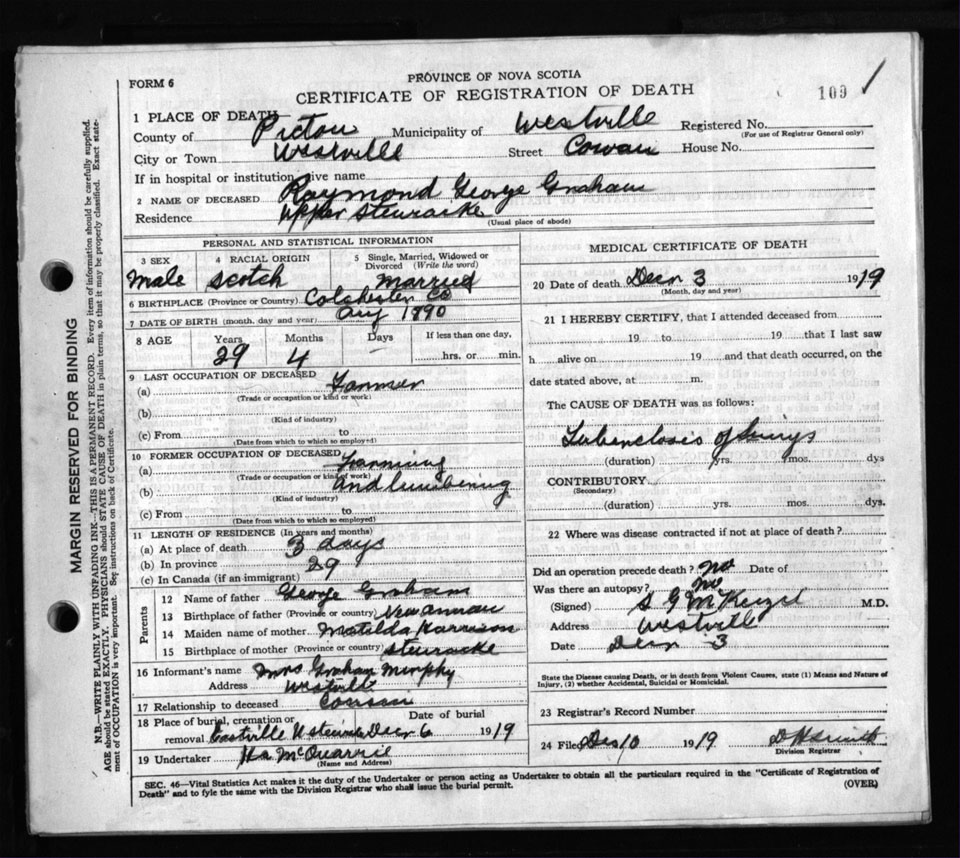 FORM 6
PROVINCE OF NOVA SCOTIA
CERTIFICATE OF REGISTRATION OF DEATH
109
1 PLACE OF DEATH
County of Pictou Municipality of Westville Registered No.
(For use of Registrar General only)
City or Town Westville Street Cowan House No.
If in hospital or institution give name
2 NAME OF DECEASED Raymond George Graham
Residence Upper Stewiacke
(Usual place of abode)
PERSONAL AND STATISTICAL INFORMATION
3 SEX 4 RACIAL ORIGIN 5 Single, Married, Widowed or Divorced (Write the word)
Male Scotch Married
6 BIRTHPLACE (Province or Country) Colchester Co
7 DATE OF BIRTH (month, day and year) Aug 1890
8 AGE Years Months Days If less than one day,
29 4 hrs. or min.
9 LAST OCCUPATION OF DECEASED
(a) Farmer
(Trade or occupation or kind or work)
(b)
(Kind of industry)
(c) From to
(Date from which to which so employed)
10 FORMER OCCUPATION OF DECEASED
(a) Farming
(Trade or occupation or kind of work)
(b) and lumbering
(Kind of industry)
(c) From to
(Date from which to which so employed)
11 LENGTH OF RESIDENCE (In years and months)
(a) At place of death 3 days
(b) In province 29
(c) In Canada (if an immigrant)
Parents
12 Name of father George Graham
13 Birthplace of father (Province or country) New Annan
14 Maiden name of mother Matilda Harrison
15 Birthplace of mother (Province or country) Stewiacke
16 Informant's name Mrs Graham Murphy
Address Westville
17 Relationship to deceased Cousin
18 Place of burial, cremation or Date of burial
removal Eastville Dec 6 1919
19 Undertaker McQuarrie
(Name and Address)
MEDICAL CERTIFICATE OF DEATH
20 Date of death Decr 3 1919
(Month, day and year)
21 I HEREBY CERTIFY, that I attended deceased from
19 to 19 that I last saw
h alive on 19 and that death occurred, on the
date stated above, at m.
The CAUSE OF DEATH was as follows:
Tuberclosis of lungs
(duration) yrs. mos. dys
CONTRIBUTORY
(Secondary)
(duration) yrs. mos. dys.
22 Where was disease contracted if not at place of death?
Did an operation precede death? No Date of
Was there an autopsy? No
(Signed) S G McKenzie M.D.
Address Westville
Date Decr 3
State the Disease causing Death, or in death from Violent Causes, state (1) Means and Nature of Injury, (2) whether Accidental, Suicidal or Homicidal.
23 Registrar's Record Number
24 Filed Dec 10 1919
Division Registrar
SEC. 46—Vital Statistics Act makes it the duty of the Undertaker or person acting as Undertaker to obtain all the particulars required in the "Certificate of Registration of
Death" and to fyle the same with the Division Registrar who shall issue the burial permit. (OVER)
MARGIN RESERVED FOR BINDING
N.B.—WRITE PLAINLY WITH UNFADING INK—THIS IS A PERMANENT RECORD. Every item of information should be carefully supplied.
AGE should be stated EXACTLY. PHYSICIANS should STATE CAUSE OF DEATH in plain terms, so that it may be properly classified. Exact statement of OCCUPATION is very important. See instructions on back of Certificate.